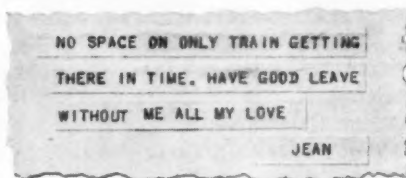 NO SPACE ON ONLY TRAIN GETTING
THERE IN TIME. HAVE GOOD LEAVE
WITHOUT ME ALL MY LOVE
JEAN